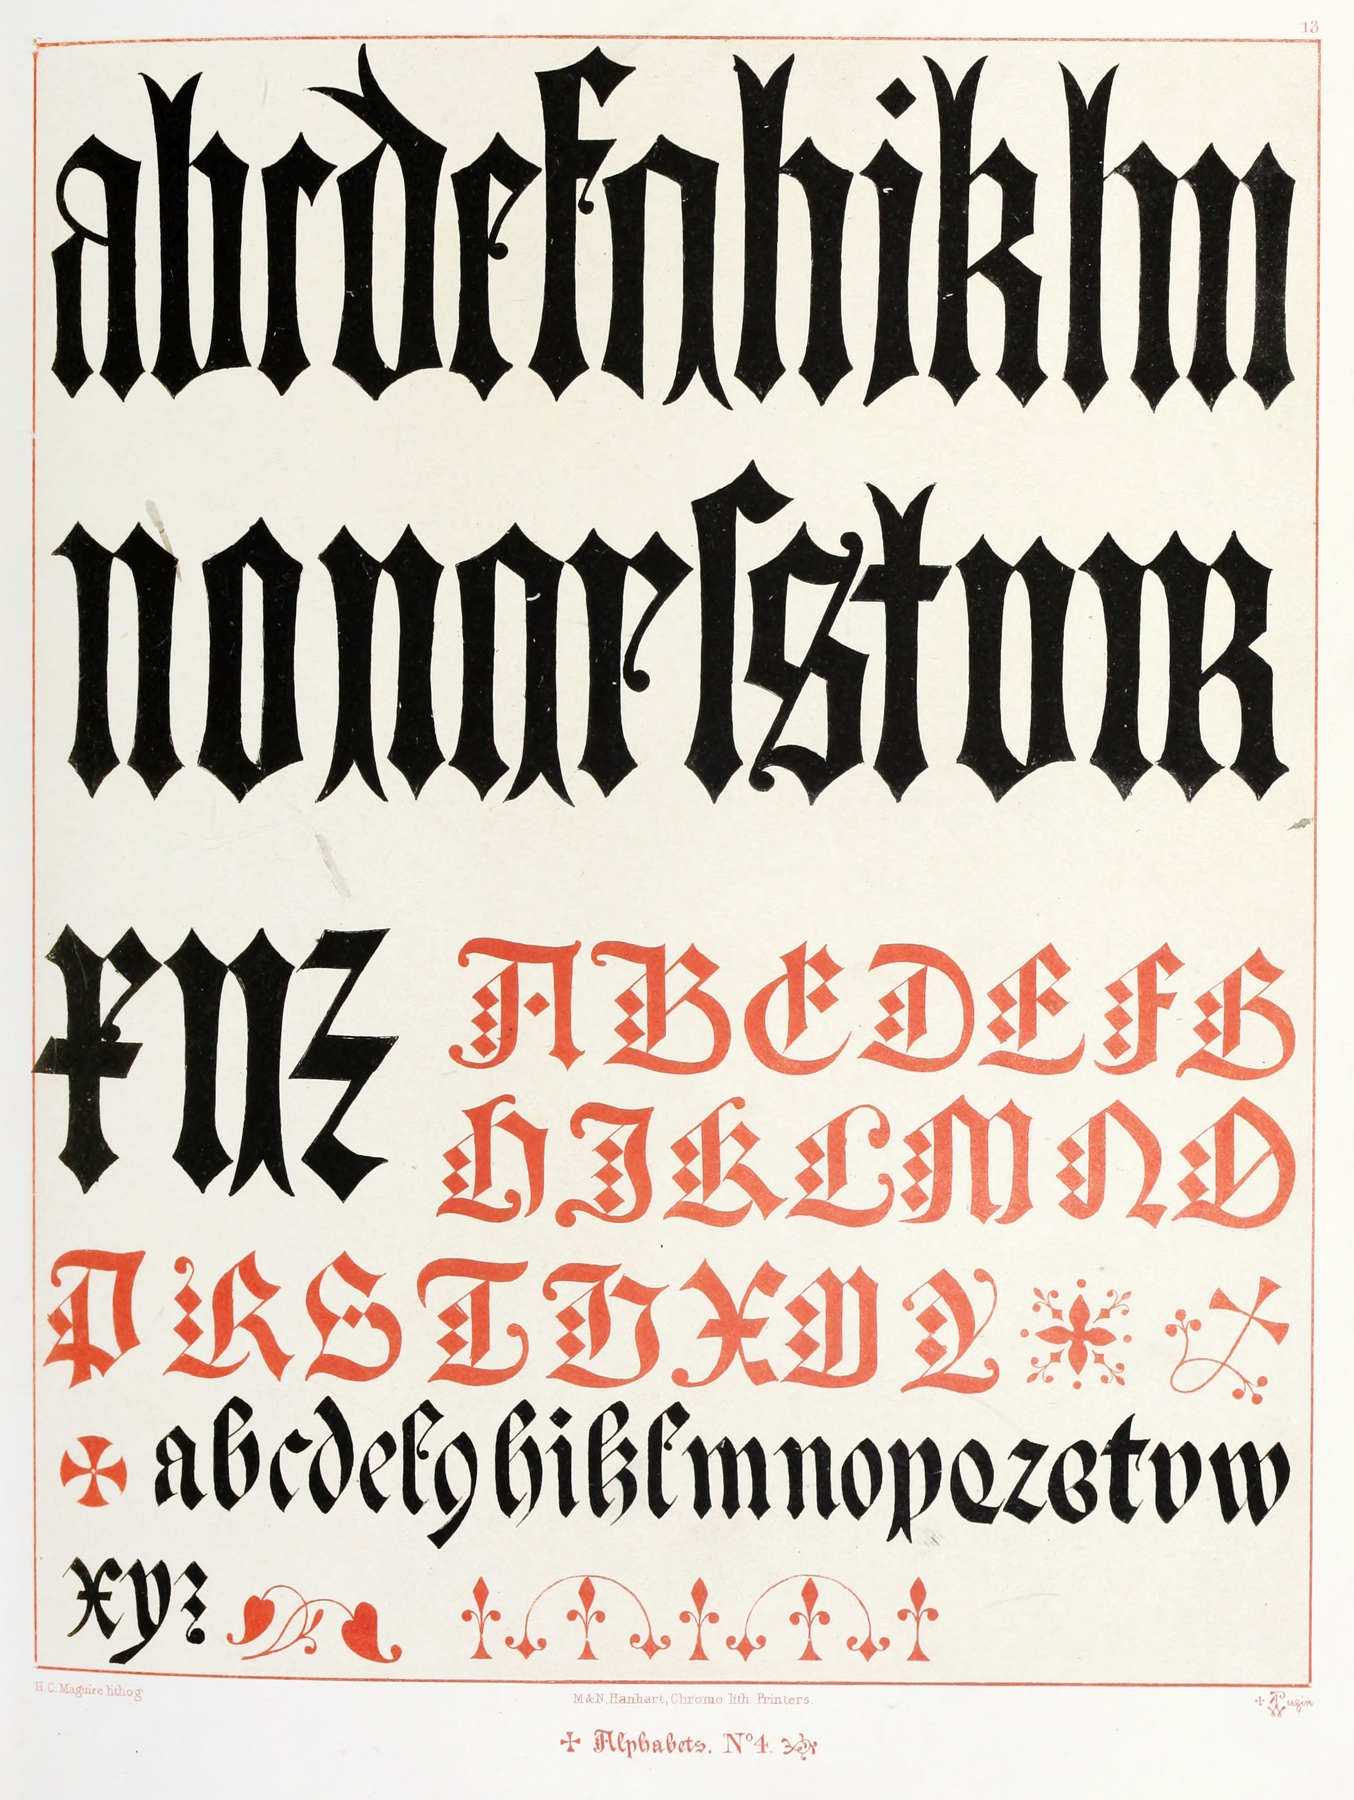 13
abcdefghiklm
nopqrſstvw
xyz
ABCDEFG
HIKLMNO
PRSTUXYZ
abcdefghiklmnopqrstvw
xyz
H. C. Maguire lithog
M & N. Hanhart, Chromo lith Printers.
Pugin
Alphabets. Nº 4.